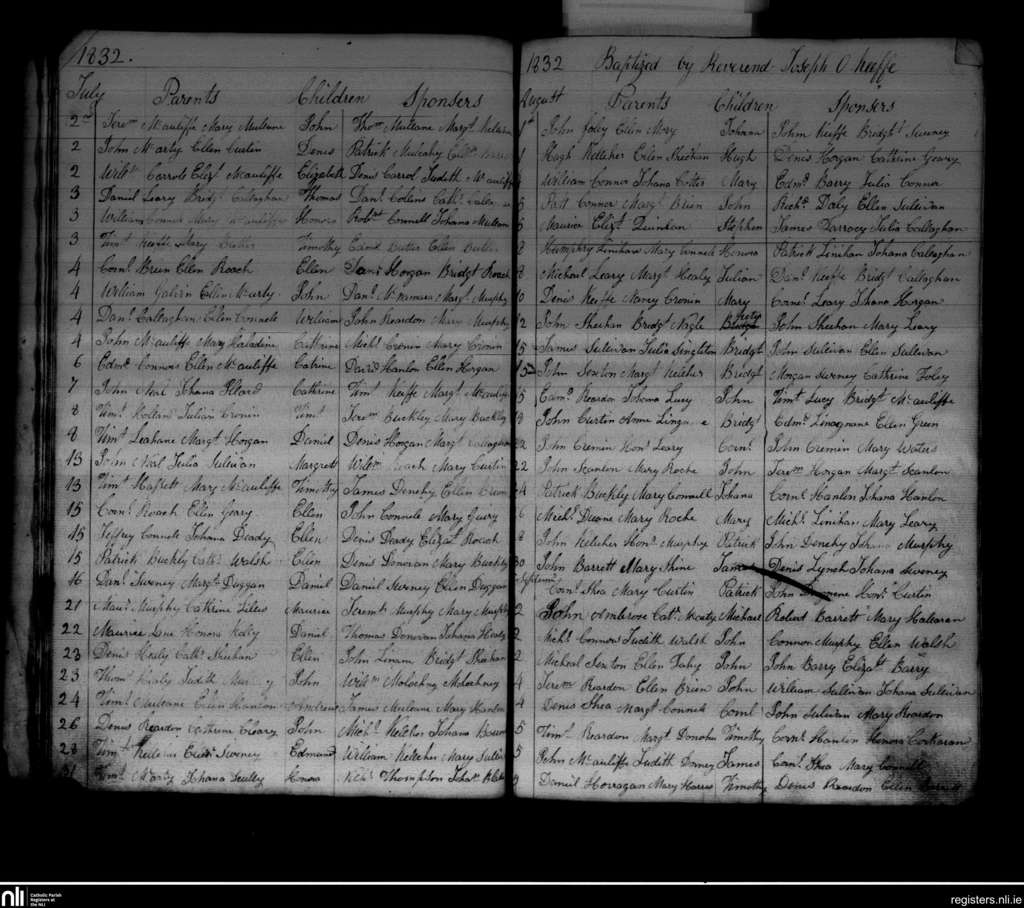 1832.
July Parents Children Sponsers
2nd Jerem McAuliffe Mary Multane John Thos Multane Margt
2 John McCarty Ellen Curtin Denis Patrick Mulcahy Cathn
2 Willm Carrol Elizt McAuliffe Elizabeth Denis Carrol Judith McAuliffe
3 Daniel Leary Bridgt Callaghan Thomas Danl Colins Cathn
3 William Connor Mary McAuliffe Honora Robert Connell Johana Multane
3 Timt Keeffe Mary Butler Timothy Edmd Butler Ellen Butler
4 Cornl Brien Ellen Roach Ellen Danl Horgan Bridgt Roach
4 William Galvin Ellen McCarty John Danl McNamara Margt Murphy
4 Danl Callaghan Ellen Connele William John Reardon Mary Murphy
4 John McAuliffe Mary Catherine Michl Cronin Mary Cronin
6 Edmd Connors Ellen McAuliffe Catrine David Hanlon Ellen Horgan
7 John Neil Johana Cathrine Timt Keiffe Margt McAuliffe
8 Timt Julian Cronin Timt Jerem Buckley Mary Buckley
8 Timt Leahane Margt Horgan Daniel Denis Horgan Margt Callaghan
13 John Neal Julia Sulivan Margrett Willm Roach Mary Curtin
13 Timt Mary McAuliffe Timothy James Denehy Ellen
15 Cornl Roach Ellen Geary Ellen John Connele Mary
15 Jeffrey Connele Johana Deady Ellen Denis Deady Elizat Roach
15 Patrick Buckly Cathn Walsh Ellen Denis Donovan Mary Buckly
16 Danl Sweney Margt Duggan Daniel Daniel Sweney Ellen Duggan
21 Maur Murphy Cathrine Maurice Jeremh Murphy Mary Murphy
22 Maurice Honora Daniel Thomas Donovan Johana Healy
23 Denis Healy Cathn Sheehan Ellen John Bridgt Sheehan
23 Thom Judith John Willm Molochny Molochney
24 Timt Multane Ellen Hanlon Andrew James Multane Mary Hanlon
26 Denis Reardon Cathrine Cleary John Michl Keleher Johana
28 Timt Sweney Edmund William Kelleher Mary
31 Johana Scully Honora Thompson
1832 Baptized by Reverend Joseph O Keeffe
August Parents Children Sponsers
1st John Foley Ellen Johana John Keiffe Bridgt Sweney
Hugh Kelleher Ellen Sheehan Hugh Denis Horgan Cathrine Geary
William Connor Johana Cotter Mary Edmd Barry Julia Connor
5 Patt Connor Margt Brien John Richd Daly Ellen Sulivan
Maurice Elizt Stephen James Darracy Julia Callaghan
8 Humphry Linihan Mary Connell Honora Patrick Linihan Johana Callaghan
Micheal Leary Margt Healy Julian Danl Keiffe Bridgt Callaghan
10 Denis Keiffe Nancy Cronin Mary Cornel Leary Johana Horgan
12 John Sheehan Bridgt Nagle John Sheehan Mary Leary
15 James Sulivan Julia Singleton Bridgt John Sulivan Ellen Sulivan
15 John Sexton Margt Keleher Bridgt Morgan Sweney Cathrine Foley
15 Reardon Johana Lucy John Timt Lucy Bridgt McAuliffe
19 John Curtin Anne Bridgt Edmd Linagnane Ellen Green
22 John Cremin Honr Leary Cornl John Cremin Mary Waters
22 John Scanlon Mary Roche John Jerem Horgan Margt Scanlon
24 Patrick Buckly Mary Connell Johana Cornl Hanlon Johana Hanlon
Michl Duane Mary Roche Mary Michl Linihan Mary Leary
John Kelcher Honr Murphy Patrick John Denehy Johana Murphy
30 John Barrett Mary Shine James Denis Lynch Johana Sweney
September
Cornl Shea Mary Curtin Patrick John Honr Curtin
2 John Ambrose Cath Micheal Robert Barrett Mary Halloran
2 Michl Connor Judith Walsh John Connor Murphy Ellen Walsh
2 Micheal Sexton Ellen Fahy John John Barry Elizabt Barry
4 Jerem Reardon Ellen Brien John William Sullivan Johana Sullivan
4 Denis Shea Margt Connell Cornl John Sulivan Mary Reardon
5 Timt Reardon Margt Donohu Timothy Cornl Hanlon Honora Corkeran
5 John McAuliffe Judith James Cornl Shea Mary Connell
9 Daniel Horragan Mary Harris Timothy Denis Reardon Ellen Barrett
nli Catholic Parish Registers at the NLI
registers.nli.ie